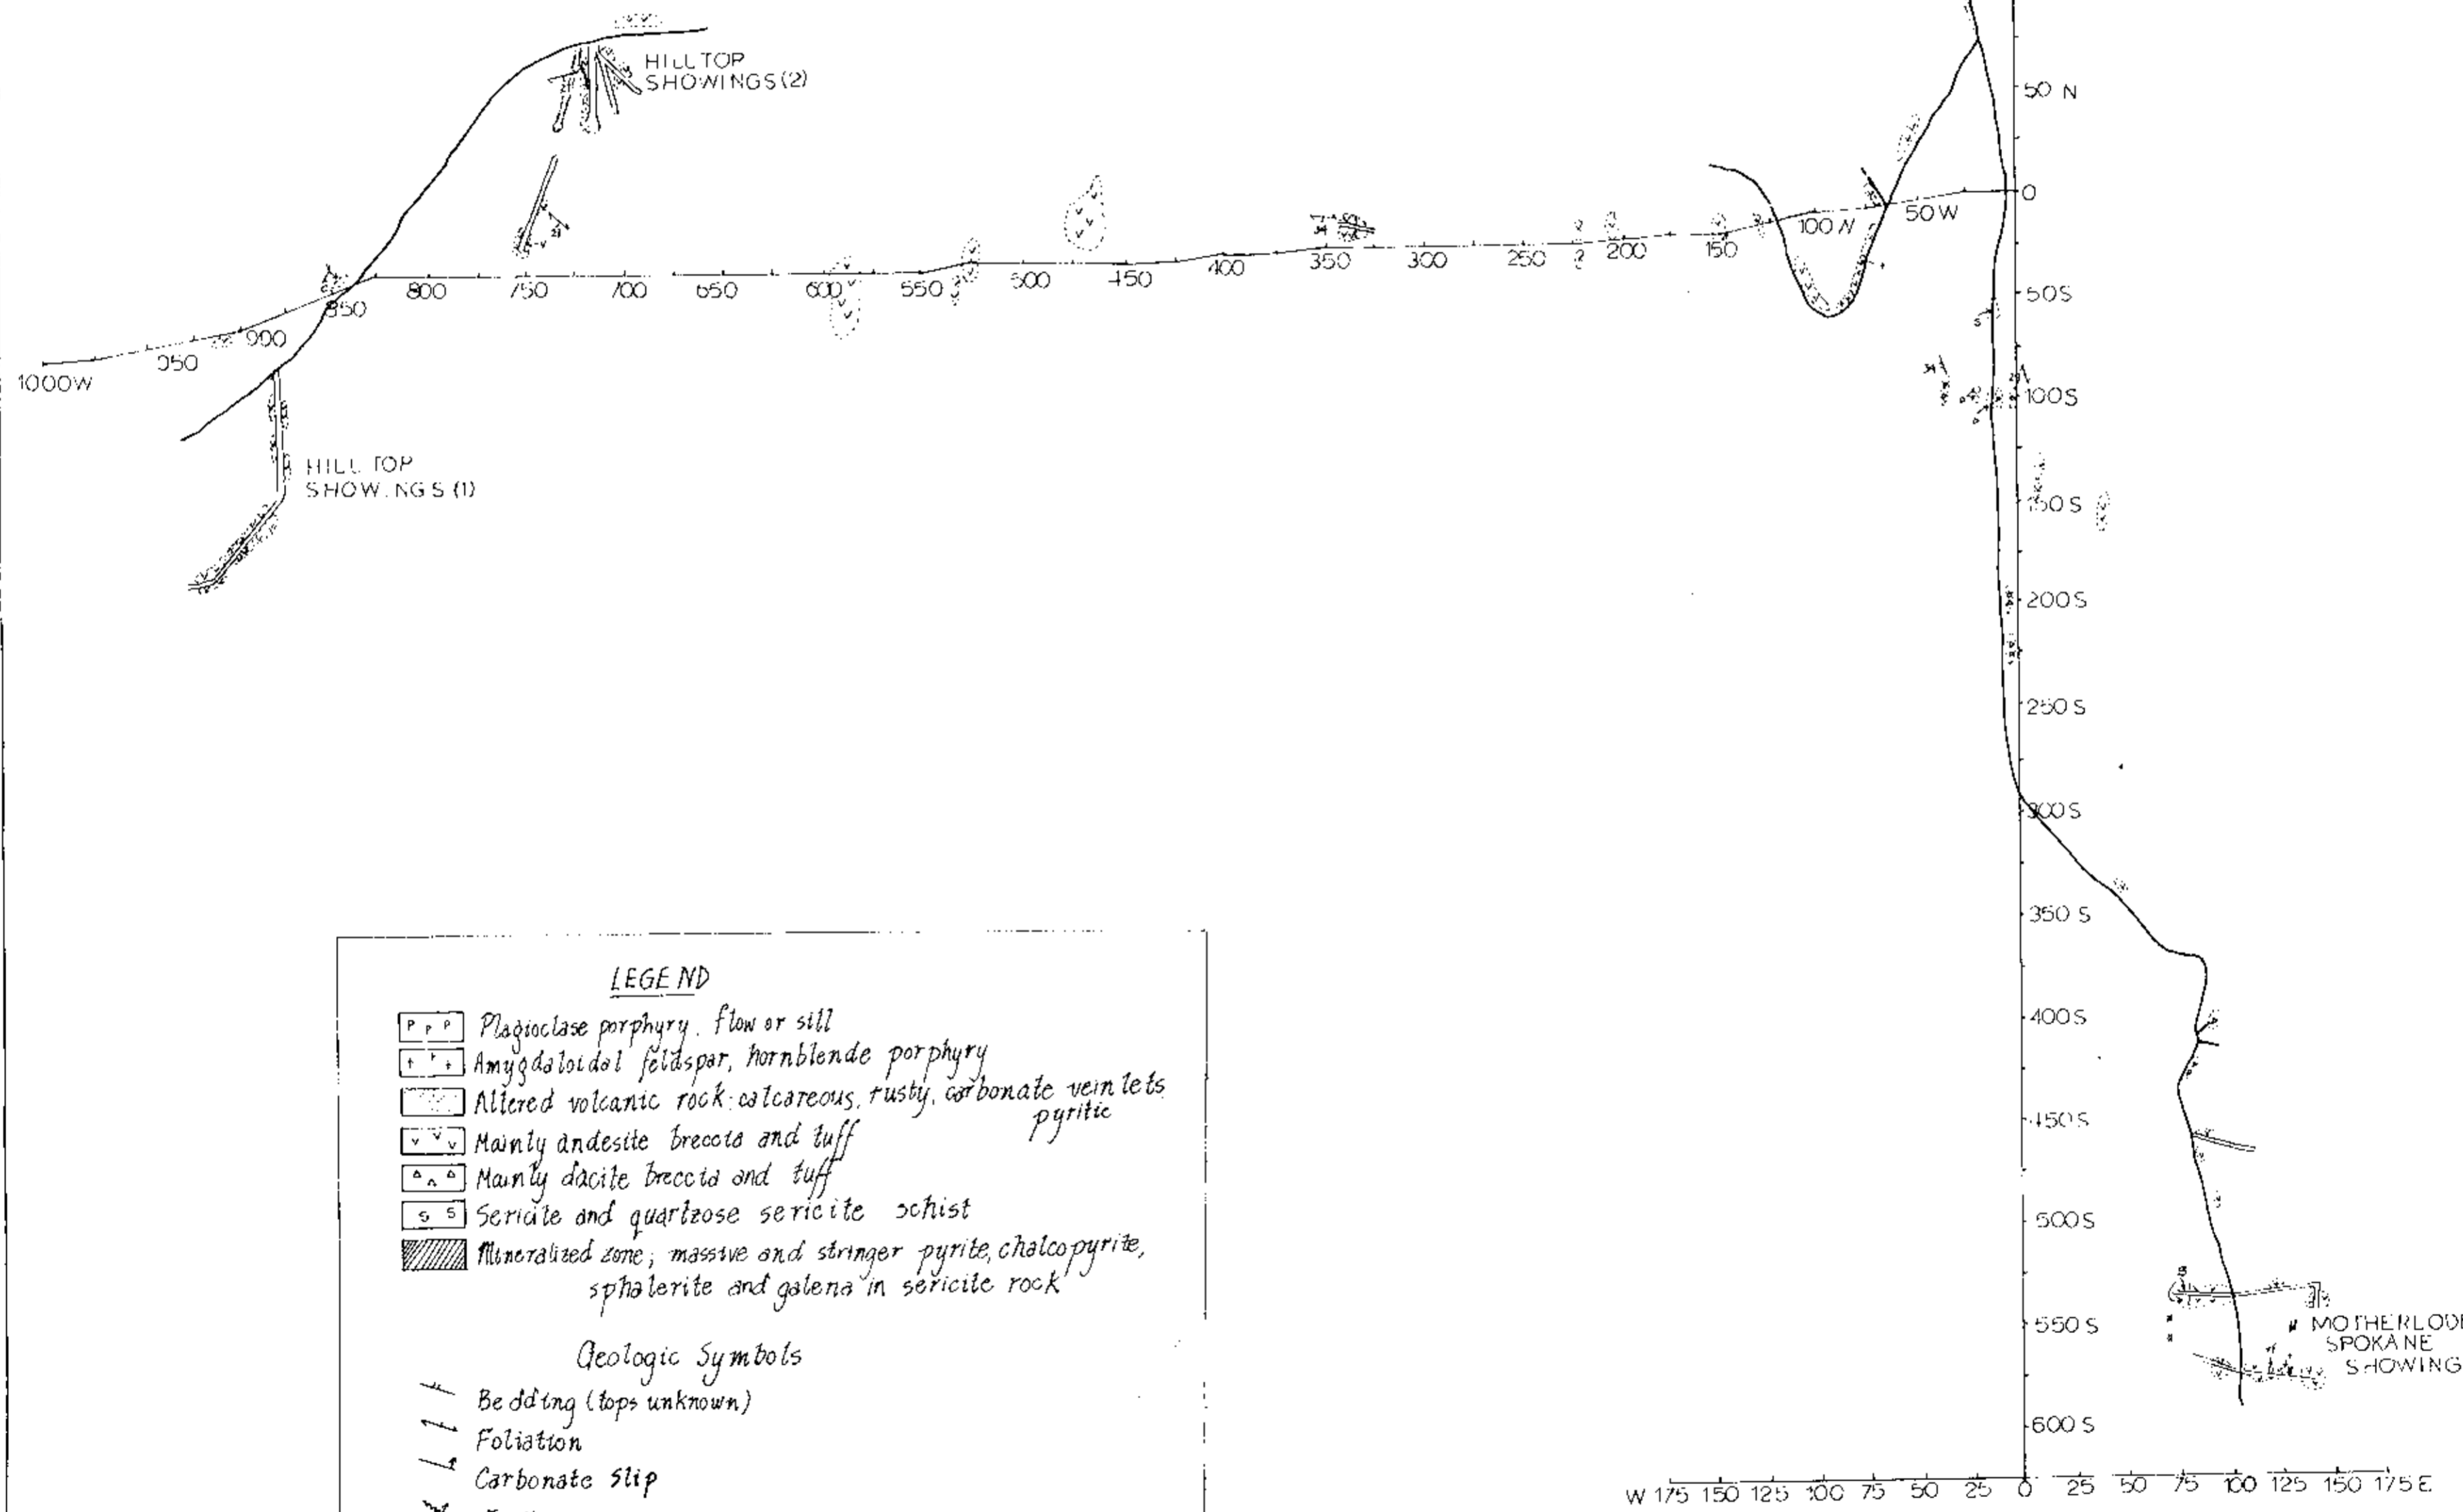 HILL TOP
SHOWINGS (2)
50 N
0
50 W
100 W
150
200
250
300
350
400
450
500
550
600
650
700
750
800
850
900
950
1000W
21
34
50S
34
100S
150 S
200S
250 S
300S
350 S
400S
450S
500S
550S
600S
HILL TOP
SHOWINGS (1)
MOTHERLODE
SPOKANE
SHOWING
W 175 150 125 100 75 50 25 0 25 50 75 100 125 150 175 E
LEGEND
P P P Plagioclase porphyry, flow or sill
Amygdaloidal feldspar, hornblende porphyry
Altered volcanic rock: calcareous, rusty, carbonate veinlets
pyritic
v v v Mainly andesite breccia and tuff
Mainly dacite breccia and tuff
S S Sericite and quartzose sericite schist
Mineralized zone; massive and stringer pyrite, chalcopyrite,
sphalerite and galena in sericite rock
Geologic Symbols
Bedding (tops unknown)
Foliation
Carbonate slip